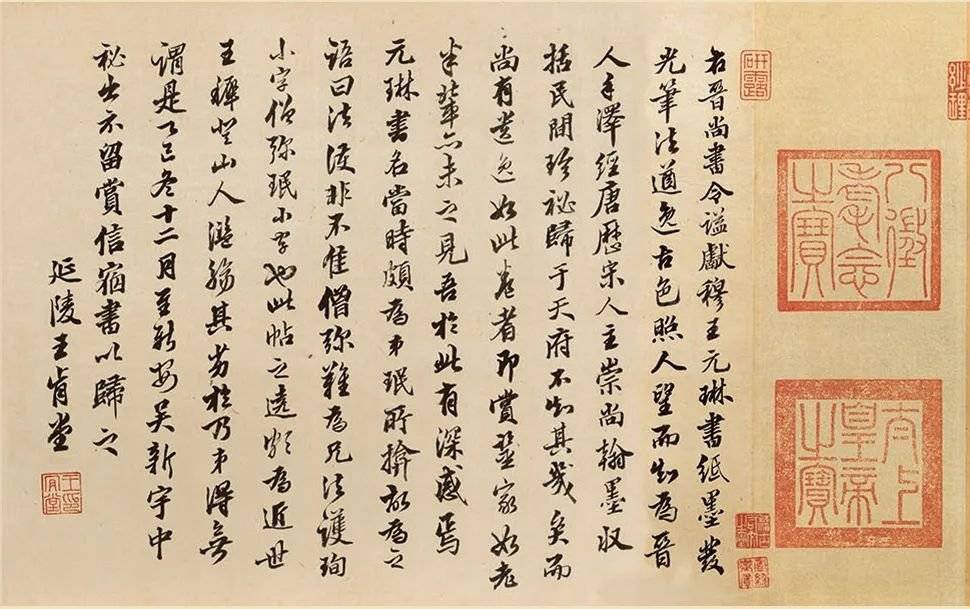 研露
八徵耄念之寶
太上皇帝之寶
右晋尚書令謚獻穆王元琳書紙墨發
光筆法遒逸古色照人望而知為晉
人手澤經唐歷宋人主崇尚翰墨収
括民間珍祕歸于天府不知其幾矣而
尚有遺逸如此卷者即賞鑒家如老
米輩亦未之見吾於此有深感焉
元琳書名當時頗為弟珉所揜故為之
語曰法護非不佳僧彌難為兄法護珣
小字僧彌珉小字也此帖之為近世
王穉登山人濫觴其劣於乃弟得無
謂是巳冬十二月至新安吳新宇中
祕出示留賞信宿書以歸之
延陵王肯堂